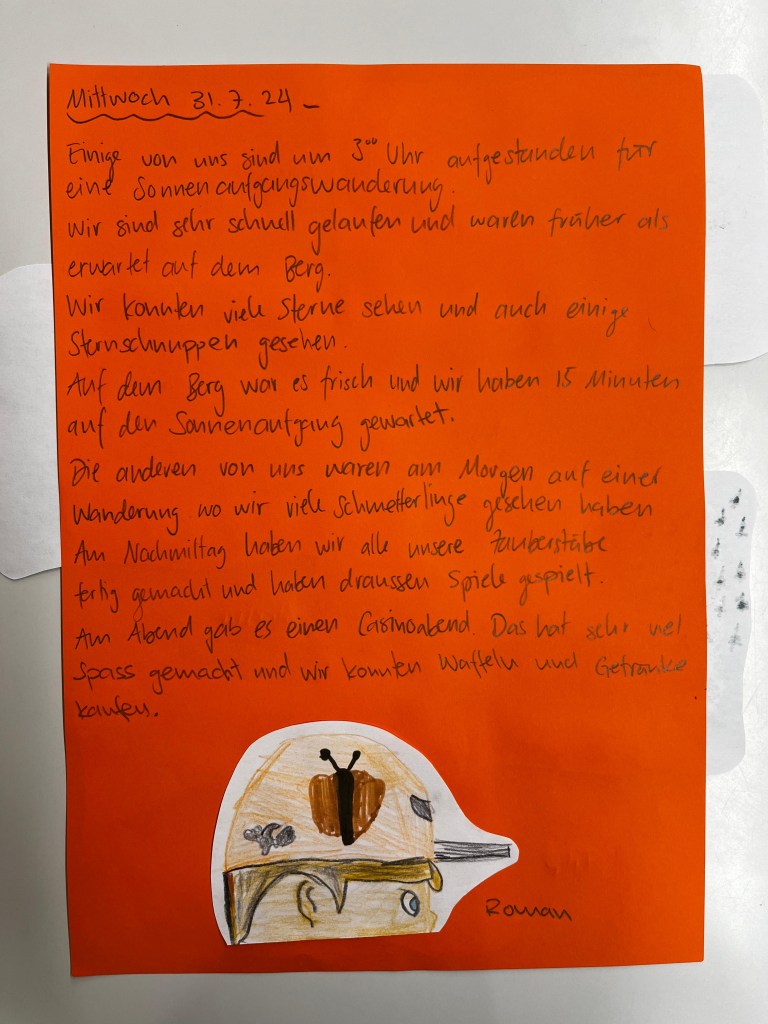 Mittwoch 31.7.24
Einige von uns sind um 3⁰⁰ Uhr aufgestanden für
eine Sonnenaufgangswanderung.
Wir sind sehr schnell gelaufen und waren früher als
erwartet auf dem Berg.
Wir konnten viele Sterne sehen und auch einige
Sternschnuppen gesehen.
Auf dem Berg war es frisch und wir haben 15 Minuten
auf den Sonnenaufgang gewartet.
Die anderen von uns waren am Morgen auf einer
Wanderung wo wir viele Schmetterlinge gesehen haben
Am Nachmittag haben wir alle unsere Zauberstäbe
fertig gemacht und haben draussen Spiele gespielt.
Am Abend gab es einen Casinoabend. Das hat sehr viel
Spass gemacht und wir konnten Waffeln und Getränke
kaufen.
Roman